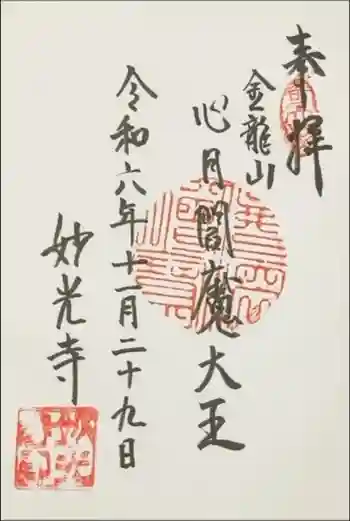 奉拝
金龍山
心月閻魔大王
令和六年十一月二十九日
妙光寺